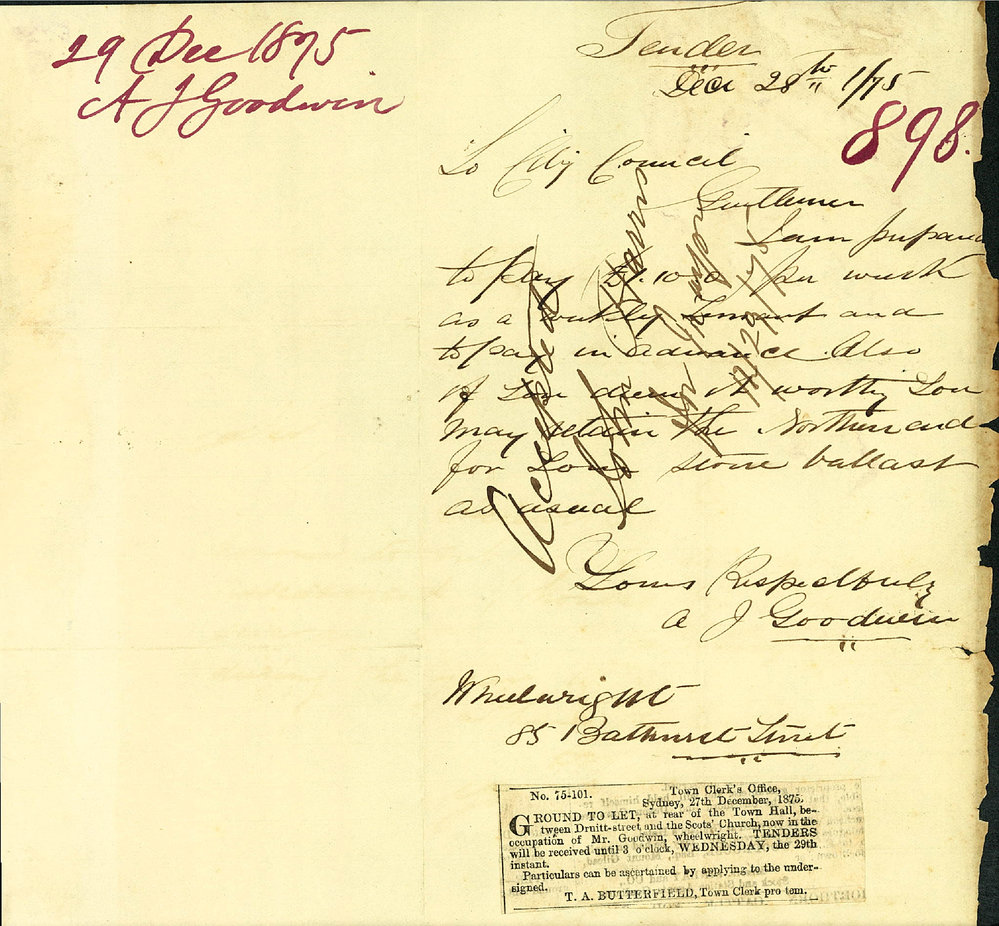 29 Dec 1875
A J Goodwin
Tender
Dec 28th 1/75
898.
To City Council
Gentlemen
I am prepared
to pay £1.10.0 per week
as a weekly Tennant and
to pay in advance. Also
if you deem it worthy you
may retain the Northern end
for your stone ballast
as usual
Yours Respectfuly
A J Goodwin
Wheelwright
85 Bathurst Street
Accepted
John
Mayor
12/29/75
No. 75-101. Town Clerk's Office,
Sydney, 27th December, 1875.
GROUND TO LET, at rear of the Town Hall, be-
tween Druitt-street and the Scots' Church, now in the
occupation of Mr. Goodwin, wheelwright. TENDERS
will be received until 3 o'clock, WEDNESDAY, the 29th
instant.
Particulars can be ascertained by applying to the under-
signed.
T. A. BUTTERFIELD, Town Clerk pro tem.